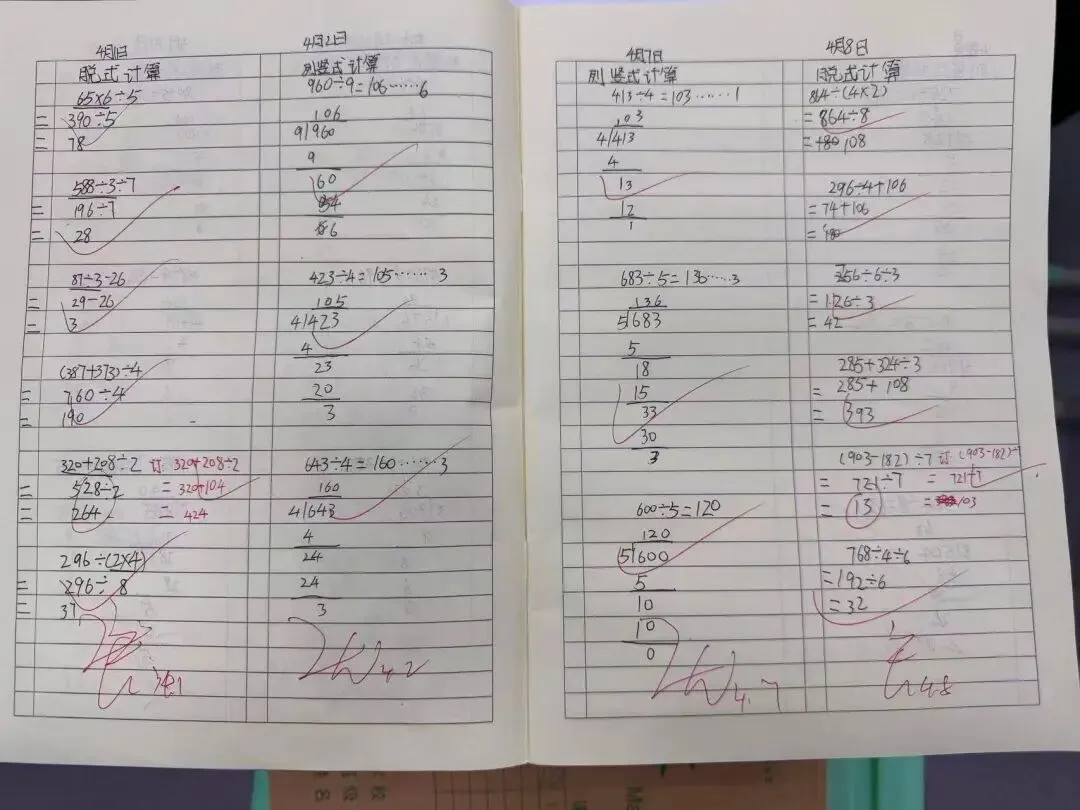 4月1日
脱式计算
65×6÷5
=390÷5
=78
588÷3÷7
=196÷7
=28
87÷3-26
=29-26
=3
(387+373)÷4
=760÷4
=190
320+208÷2 订: 320+208÷2
=528÷2 =320+104
=264 =424
296÷(2×4)
=296÷8
=37
4月2日
列竖式计算
960÷9=106……6
106
9√960
9
60
54
6
423÷4=105……3
105
4√423
4
23
20
3
643÷4=160……3
160
4√643
4
24
24
3
4.2
4月7日
列竖式计算
413÷4=103……1
103
4√413
4
13
12
1
683÷5=136……3
136
5√683
5
18
15
33
30
3
600÷5=120
120
5√600
5
10
10
0
4.7
4月8日
脱式计算
864÷(4×2)
=864÷8
=108
296÷4+106
=74+106
=180
756÷6÷3
=126÷3
=42
285+324÷3
=285+108
=393
(903-182)÷7 订: (903-182)÷
=721÷7 =721÷7
=13 =103
768÷4÷6
=192÷6
=32
4.8